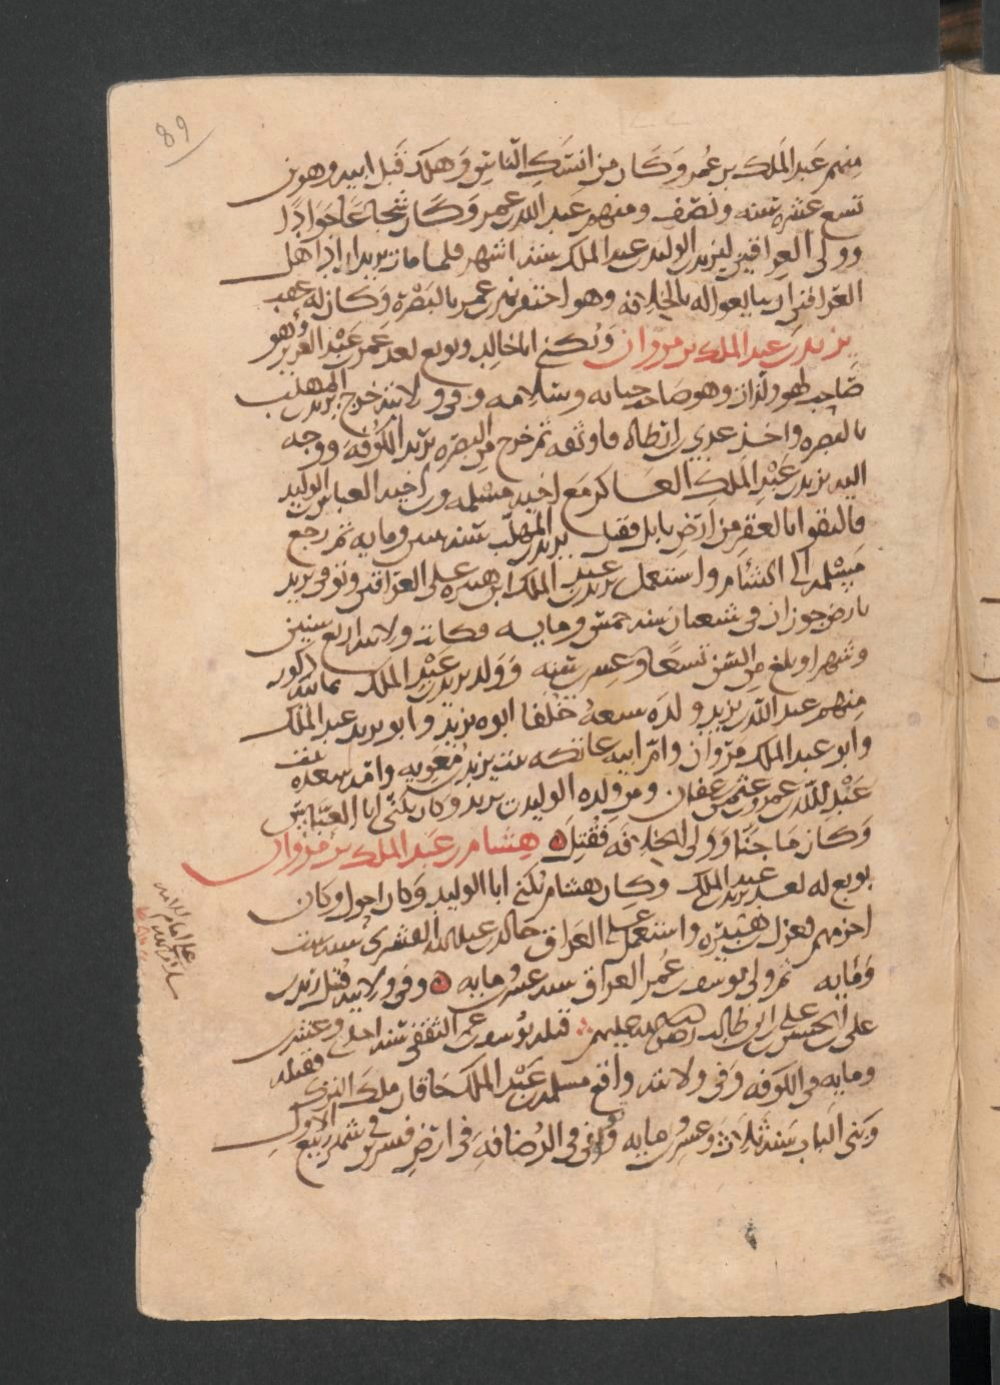 89
منهم عبد الملك بن عمر وكان من انسك الناس وهلك قبل ابيه وهو بن
تسع عشره سنه ونصف ومنهم عبد الله بن عمر وكان شجاعا جوادا
وولي العراقين ليزيد بن الوليد بن عبد الملك ستة اشهر فلما مات يزيد اراد اهل
العراقين ان يبايعوا له بالخلافه وهو احتفر نهر بن عمر بالبصرة وكان له عقب
يزيد بن عبد الملك بن مروان ويكنى ابا خالد وبويع بعد عمر بن عبد العزيز وهو
صاحب لهو ولذات وهو صاحب حبابه وسلامه وفي ولايته خرج يزيد بن المهلب
بالبصره واخذ عدي بن ارطاة فاوثقه ثم خرج من البصره يريد الكوفة ووجه
اليه يزيد بن عبد الملك العساكر مع اخيه مسلمه وبن اخيه العباس بن الوليد
فالتقوا بالعقر من ارض بابل فقتل يزيد بن المهلب سنة ومايه ثم رجع
مسلمه الى الشام واستعمل يزيد بن عبد الملك ابن هبيره على العراقين وتوفي يزيد
بارض حوران في شعبان سنه خمس ومايه وكانت ولايته اربع سنين
وشهرا وبلغ من السن تسعا وعشرين سنه وولد يزيد بن عبد الملك ثمانيه ذكور
منهم عبد الله بن يزيد ولده سبعه خلفا ابوه يزيد وابو يزيد عبد الملك
وابو عبد الملك مروان وام ابيه عاتكه بنت يزيد بن معويه وامه سعده بنت
عبد الله بن عمرو بن عثمن بن عفان ومن ولده الوليد بن يزيد وكان يكنى ابا العباس
وكان ماجنا وولي الخلافه فقتل هشام بن عبد الملك بن مروان
بويع له بعد يزيد بن عبد الملك وكان هشام يكنى ابا الوليد وكان احول وكان
احزمهم فعزل بن هبيره واستعمل على العراق خالد بن عبد الله القسري سنه ست
ومايه ثم ولى يوسف بن عمر العراق سنه عشرين ومايه وفي ولايته قتل زيد بن
على بن الحسين بن علي بن ابي طالب عليهم قتله يوسف بن عمر الثقفي سنه احدى وعشرين
ومايه في الكوفه وفي ولايته واقع مسلمه بن عبد الملك خاقان ملك الترك فقتله
وبنى الباب سنه ثلاث وعشرين ومايه وتوفي في الرصافة في ارض قنسرين في شهر ربيع الاول